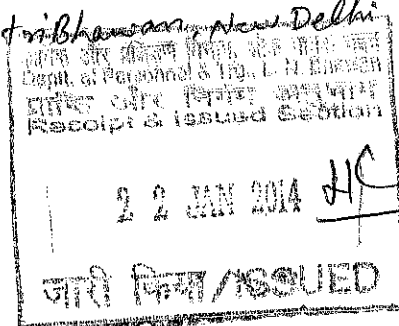 triBhawan, New Delhi
Deptt. of Personnel & Trg., L. N. Bhavan
Receipt & Issued Section
22 JAN 2014 HC
जारी किया / ISSUED